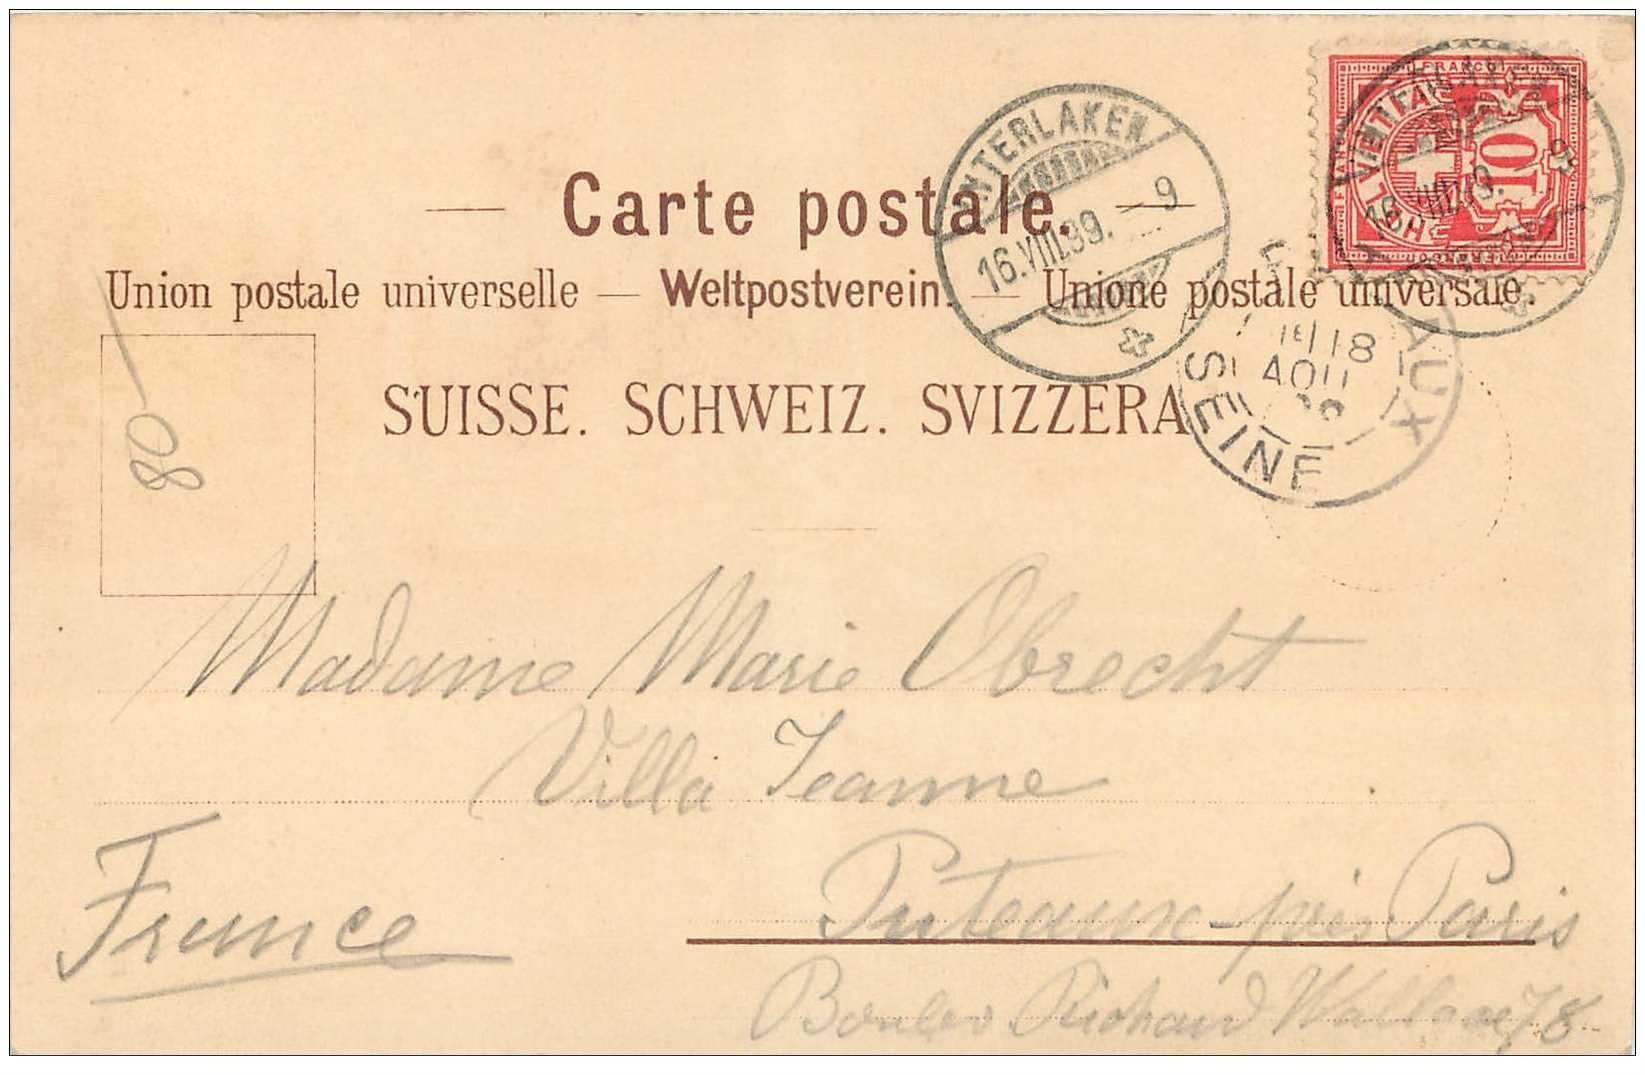 Carte postale.
Union postale universelle — Weltpostverein. — Unione postale universale.
SUISSE. SCHWEIZ. SVIZZERA
INTERLAKEN
16.VIII.99. — 9
FRANCO
10
SEINE
AUX
18
AOU
80
Madame Marie Obrecht
Villa Jeanne
Puteaux - près Paris
France
Richard Wallace 78